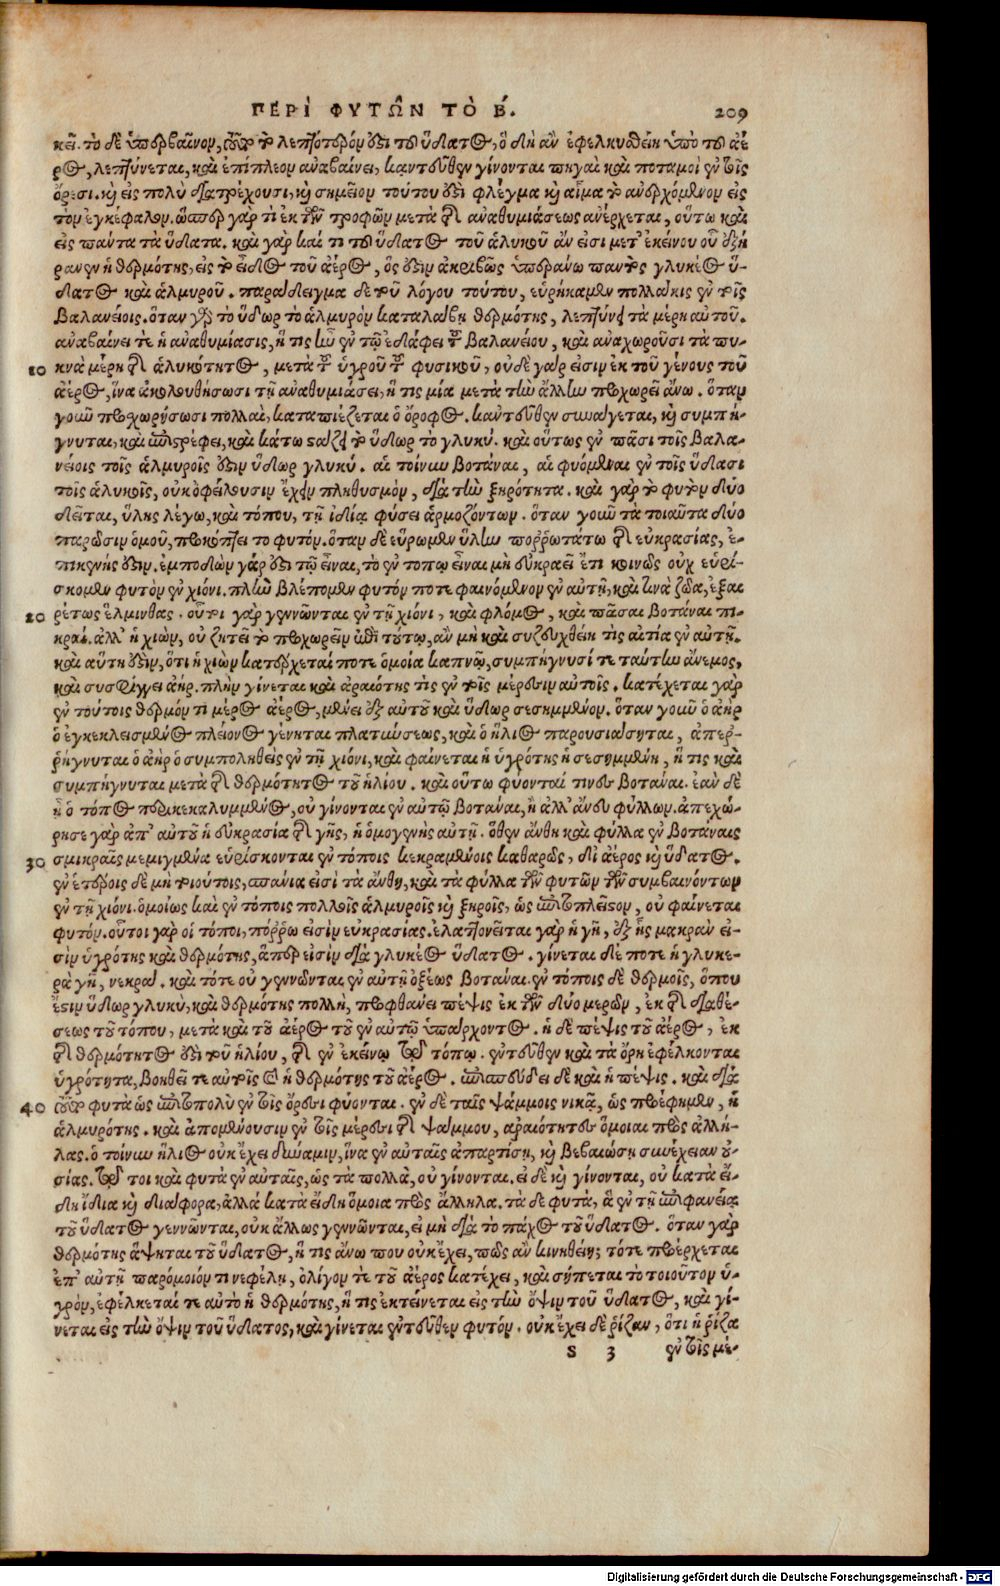 ΠΕΡΙ ΦΥΤΩΝ ΤΟ Β. 209
κεῖ. τὸ δὲ ὑπερβαῖνον, τοῦτο λεπτότερόν ἐστι τοῦ ὕδατος, ὃ δὴ ἂν ἐφελκυσθείη ὑπὸ τοῦ ἀέ-
ρος, λεπτύνεται, καὶ ἐπίπλεον ἀναβαίνει, κἀντεῦθεν γίνονται πηγαὶ καὶ ποταμοὶ ἐν τοῖς
ὄρεσι. καὶ εἰς πολὺ διατρέχουσι, καὶ σημεῖον τούτου ἐστὶ φλέγμα καὶ αἷμα τὸ ἀνερχόμενον εἰς
τὸν ἐγκέφαλον. ὥσπερ γάρ τι ἐκ τῶν τροφῶν μετὰ τῆς ἀναθυμιάσεως ἀνέρχεται, οὕτω καὶ
εἰς πάντα τὰ ὕδατα. καὶ γὰρ καί τι τοῦ ὕδατος τοῦ ἁλυκοῦ ἄνεισι μετ' ἐκείνου οὗ ἐξή-
ρανεν ἡ θερμότης, εἰς τὸ εἶδος τοῦ ἀέρος, ὅς ἐστιν ἀκριβῶς ὑπεράνω παντὸς γλυκέος ὕ-
δατος καὶ ἁλμυροῦ. παράδειγμα δὲ τοῦ λόγου τούτου, εὑρήκαμεν πολλάκις ἐν τοῖς
βαλανείοις. ὅταν γὰρ τὸ ὕδωρ τὸ ἁλμυρὸν καταλάβῃ θερμότης, λεπτύνει τὰ μέρη αὐτοῦ.
ἀναβαίνει τε ἡ ἀναθυμίασις, ἥ τις ἦν ἐν τῷ ἐδάφει τοῦ βαλανείου, καὶ ἀναχωροῦσι τὰ πυ-
10 κνὰ μέρη τῆς ἁλυκότητος, μετὰ τοῦ ὑγροῦ τοῦ φυσικοῦ, οὐδὲ γάρ εἰσιν ἐκ τοῦ γένους τοῦ
ἀέρος, ἵνα ἀκολουθήσωσι τῇ ἀναθυμιάσει, ἥ τις μία μετὰ τὴν ἄλλην προχωρεῖ ἄνω. ὅταν
γοῦν προχωρήσωσι πολλαὶ, καταπιέζεται ὁ ὄροφος. κἀντεῦθεν συνάγεται, καὶ συμπή-
γνυται, καὶ ἐπιστρέφει, καὶ κάτω στάζει τὸ ὕδωρ τὸ γλυκύ. καὶ οὕτως ἐν πᾶσι τοῖς βαλα-
νείοις τοῖς ἁλμυροῖς ἐστιν ὕδωρ γλυκύ. αἱ τοίνυν βοτάναι, αἱ φυόμεναι ἐν τοῖς ὕδασι
τοῖς ἁλυκοῖς, οὐκ ὀφείλουσιν ἔχειν πληθυσμὸν, διὰ τὴν ξηρότητα. καὶ γὰρ τὸ φυτὸν δύο
δεῖται, ὕλης λέγω, καὶ τόπου, τῇ ἰδίᾳ φύσει ἁρμοζόντων. ὅταν γοῦν τὰ τοιαῦτα δύο
παρῶσιν ὁμοῦ, προκόπτει τὸ φυτόν. ὅταν δὲ εὕρωμεν ὕλην πορρωτάτω τῆς εὐκρασίας, ἐ-
πικενής ἐστιν. ἐμποδὼν γάρ ἐστι τῷ εἶναι, τὸ ἐν τόπῳ εἶναι μὴ εὐκραεῖ ἔτι κοινῶς οὐχ εὑρί-
σκομεν φυτὸν ἐν χιόνι. πλὴν βλέπομεν φυτόν ποτε φαινόμενον ἐν αὐτῇ, καὶ τινὰ ζῶα, ἐξαι-
20 ρέτως ἕλμινθας. οὗτοι γὰρ γεννῶνται ἐν τῇ χιόνι, καὶ φλόμος, καὶ πᾶσαι βοτάναι πι-
κραί. ἀλλ' ἡ χιὼν, οὐ ζητεῖ τὸ προχωρεῖν ἐπὶ τούτῳ, ἂν μὴ καὶ συζευχθείη τὶς αἰτία ἐν αὐτῇ.
καὶ αὕτη ἐστὶν, ὅτι ἡ χιὼν κατέρχεταί ποτε ὁμοία καπνῷ, συμπήγνυσί τε ταύτην ἄνεμος,
καὶ συσφίγγει ἀήρ. πλὴν γίνεται καὶ ἀραιότης τὶς ἐν τοῖς μέρεσιν αὐτοῖς. κατέχεται γὰρ
ἐν τούτοις θερμόν τι μέρος ἀέρος, μένει ἐξ αὐτοῦ καὶ ὕδωρ σεσημμένον. ὅταν γοῦν ὁ ἀὴρ
ὁ ἐγκεκλεισμένος πλέιονος γένηται πλατύνσεως, καὶ ὁ ἥλιος παρουσιάσηται, ἀπερ-
ρήγνυται ὁ ἀὴρ ὁ συμποληθεὶς ἐν τῇ χιόνι, καὶ φαίνεται ἡ ὑγρότης ἡ σεσημμένη, ἥ τις καὶ
συμπήγνυται μετὰ τῆς θερμότητος τοῦ ἡλίου. καὶ οὕτω φύονταί τινες βοτάναι. ἐὰν δὲ
ᾖ ὁ τόπος περικεκαλυμμένος, οὐ γίνονται ἐν αὐτῷ βοτάναι, ἢ ἀλλ' ἄνευ φύλλων. ἀπεχώ-
ρησε γὰρ ἀπ' αὐτοῦ ἡ εὐκρασία τῆς γῆς, ἡ ὁμογενὴς αὐτῇ. ὅθεν ἄνθη καὶ φύλλα ἐν βοτάναις
30 σμικραῖς μεμιγμένα εὑρίσκονται ἐν τόποις κεκραμένοις καθαρῶς, δι' ἀέρος καὶ ὕδατος.
ἐν ἑτέροις δὲ μὴ τοιούτοις, σπάνια εἰσὶ τὰ ἄνθη, καὶ τὰ φύλλα τῶν φυτῶν τῶν συμβαινόντων
ἐν τῇ χιόνι. ὁμοίως καὶ ἐν τόποις πολλοῖς ἁλμυροῖς καὶ ξηροῖς, ὡς ἐπιπλεῖστον, οὐ φαίνεται
φυτόν. οὗτοι γὰρ οἱ τόποι, πόρρω εἰσὶν εὐκρασίας. ἐλαττονεῖται γὰρ ἡ γῆ, ἐξ ἧς μακρὰν εἰ-
σὶν ὑγρότης καὶ θερμότης, ἅπερ εἰσὶν διὰ γλυκέος ὕδατος. γίνεται δέ ποτε ἡ γλυκε-
ρὰ γῆ, νεκρά. καὶ τότε οὐ γεννῶνται ἐν αὐτῇ ὀξέως βοτάναι. ἐν τόποις δὲ θερμοῖς, ὅπου
ἔστιν ὕδωρ γλυκὺ, καὶ θερμότης πολλὴ, προφθάνει πέψις ἐκ τῶν δύο μερῶν, ἐκ τῆς διαθέ-
σεως τοῦ τόπου, μετὰ καὶ τοῦ ἀέρος τοῦ ἐν αὐτῷ ὑπάρχοντος. ἡ δὲ πέψις τοῦ ἀέρος, ἐκ
τῆς θερμότητος ἐστὶ τοῦ ἡλίου, τῆς ἐν ἐκείνῳ τῷ τόπῳ. ἐντεῦθεν καὶ τὰ ὄρη ἐφέλκονται
ὑγρότητα, βοηθεῖ τε αὐτοῖς καὶ ἡ θερμότης τοῦ ἀέρος. ἐπισπεύδει δὲ καὶ ἡ πέψις. καὶ διὰ
40 τοῦτο φυτὰ ὡς ἐπιπολὺ ἐν τοῖς ὄρεσι φύονται. ἐν δὲ ταῖς ψάμμοις νικᾷ, ὡς προέφημεν, ἡ
ἁλμυρότης. καὶ ἀπομένουσιν ἐν τοῖς μέρεσι τῆς ψάμμου, ἀραιότητες ὅμοιαι πρὸς ἀλλή-
λας. ὁ τοίνυν ἥλιος οὐκ ἔχει δύναμιν, ἵνα ἐν αὐταῖς ἀπαρτίσῃ, καὶ βεβαιώσῃ συνέχειαν οὐ-
σίας. τῷ τοι καὶ φυτὰ ἐν αὐταῖς, ὡς τὰ πολλὰ, οὐ γίνονται. εἰ δὲ καὶ γίνονται, οὐ κατὰ εἴ-
δη ἴδια καὶ διάφορα, ἀλλὰ κατὰ εἴδη ὅμοια πρὸς ἄλληλα. τὰ δὲ φυτὰ, ἃ ἐν τῇ ἐπιφανείᾳ
τοῦ ὕδατος γεννῶνται, οὐκ ἄλλως γεννῶνται, εἰ μὴ διὰ τὸ πάχος τοῦ ὕδατος. ὅταν γὰρ
θερμότης ἅψηται τοῦ ὕδατος, ἥ τις ἄνω που οὐκ ἔχει, πῶς ἂν κινηθείη; τότε προέρχεται
ἐπ' αὐτῇ παρόμοιόν τι νεφέλῃ, ὀλίγον τε τοῦ ἀέρος κατέχει, καὶ σήπεται τὸ τοιοῦτον ὑ-
γρὸν, ἐφέλκεταί τε αὐτὸ ἡ θερμότης, ἥ τις ἐκτείνεται εἰς τὴν ὄψιν τοῦ ὕδατος, καὶ γί-
νεται εἰς τὴν ὄψιν τοῦ ὕδατος, καὶ γίνεται ἐντεῦθεν φυτόν. οὐκ ἔχει δὲ ῥίζαν, ὅτι ἡ ῥίζα
S 3 ἐν τοῖς μέ-
Digitalisierung gefördert durch die Deutsche Forschungsgemeinschaft - DFG